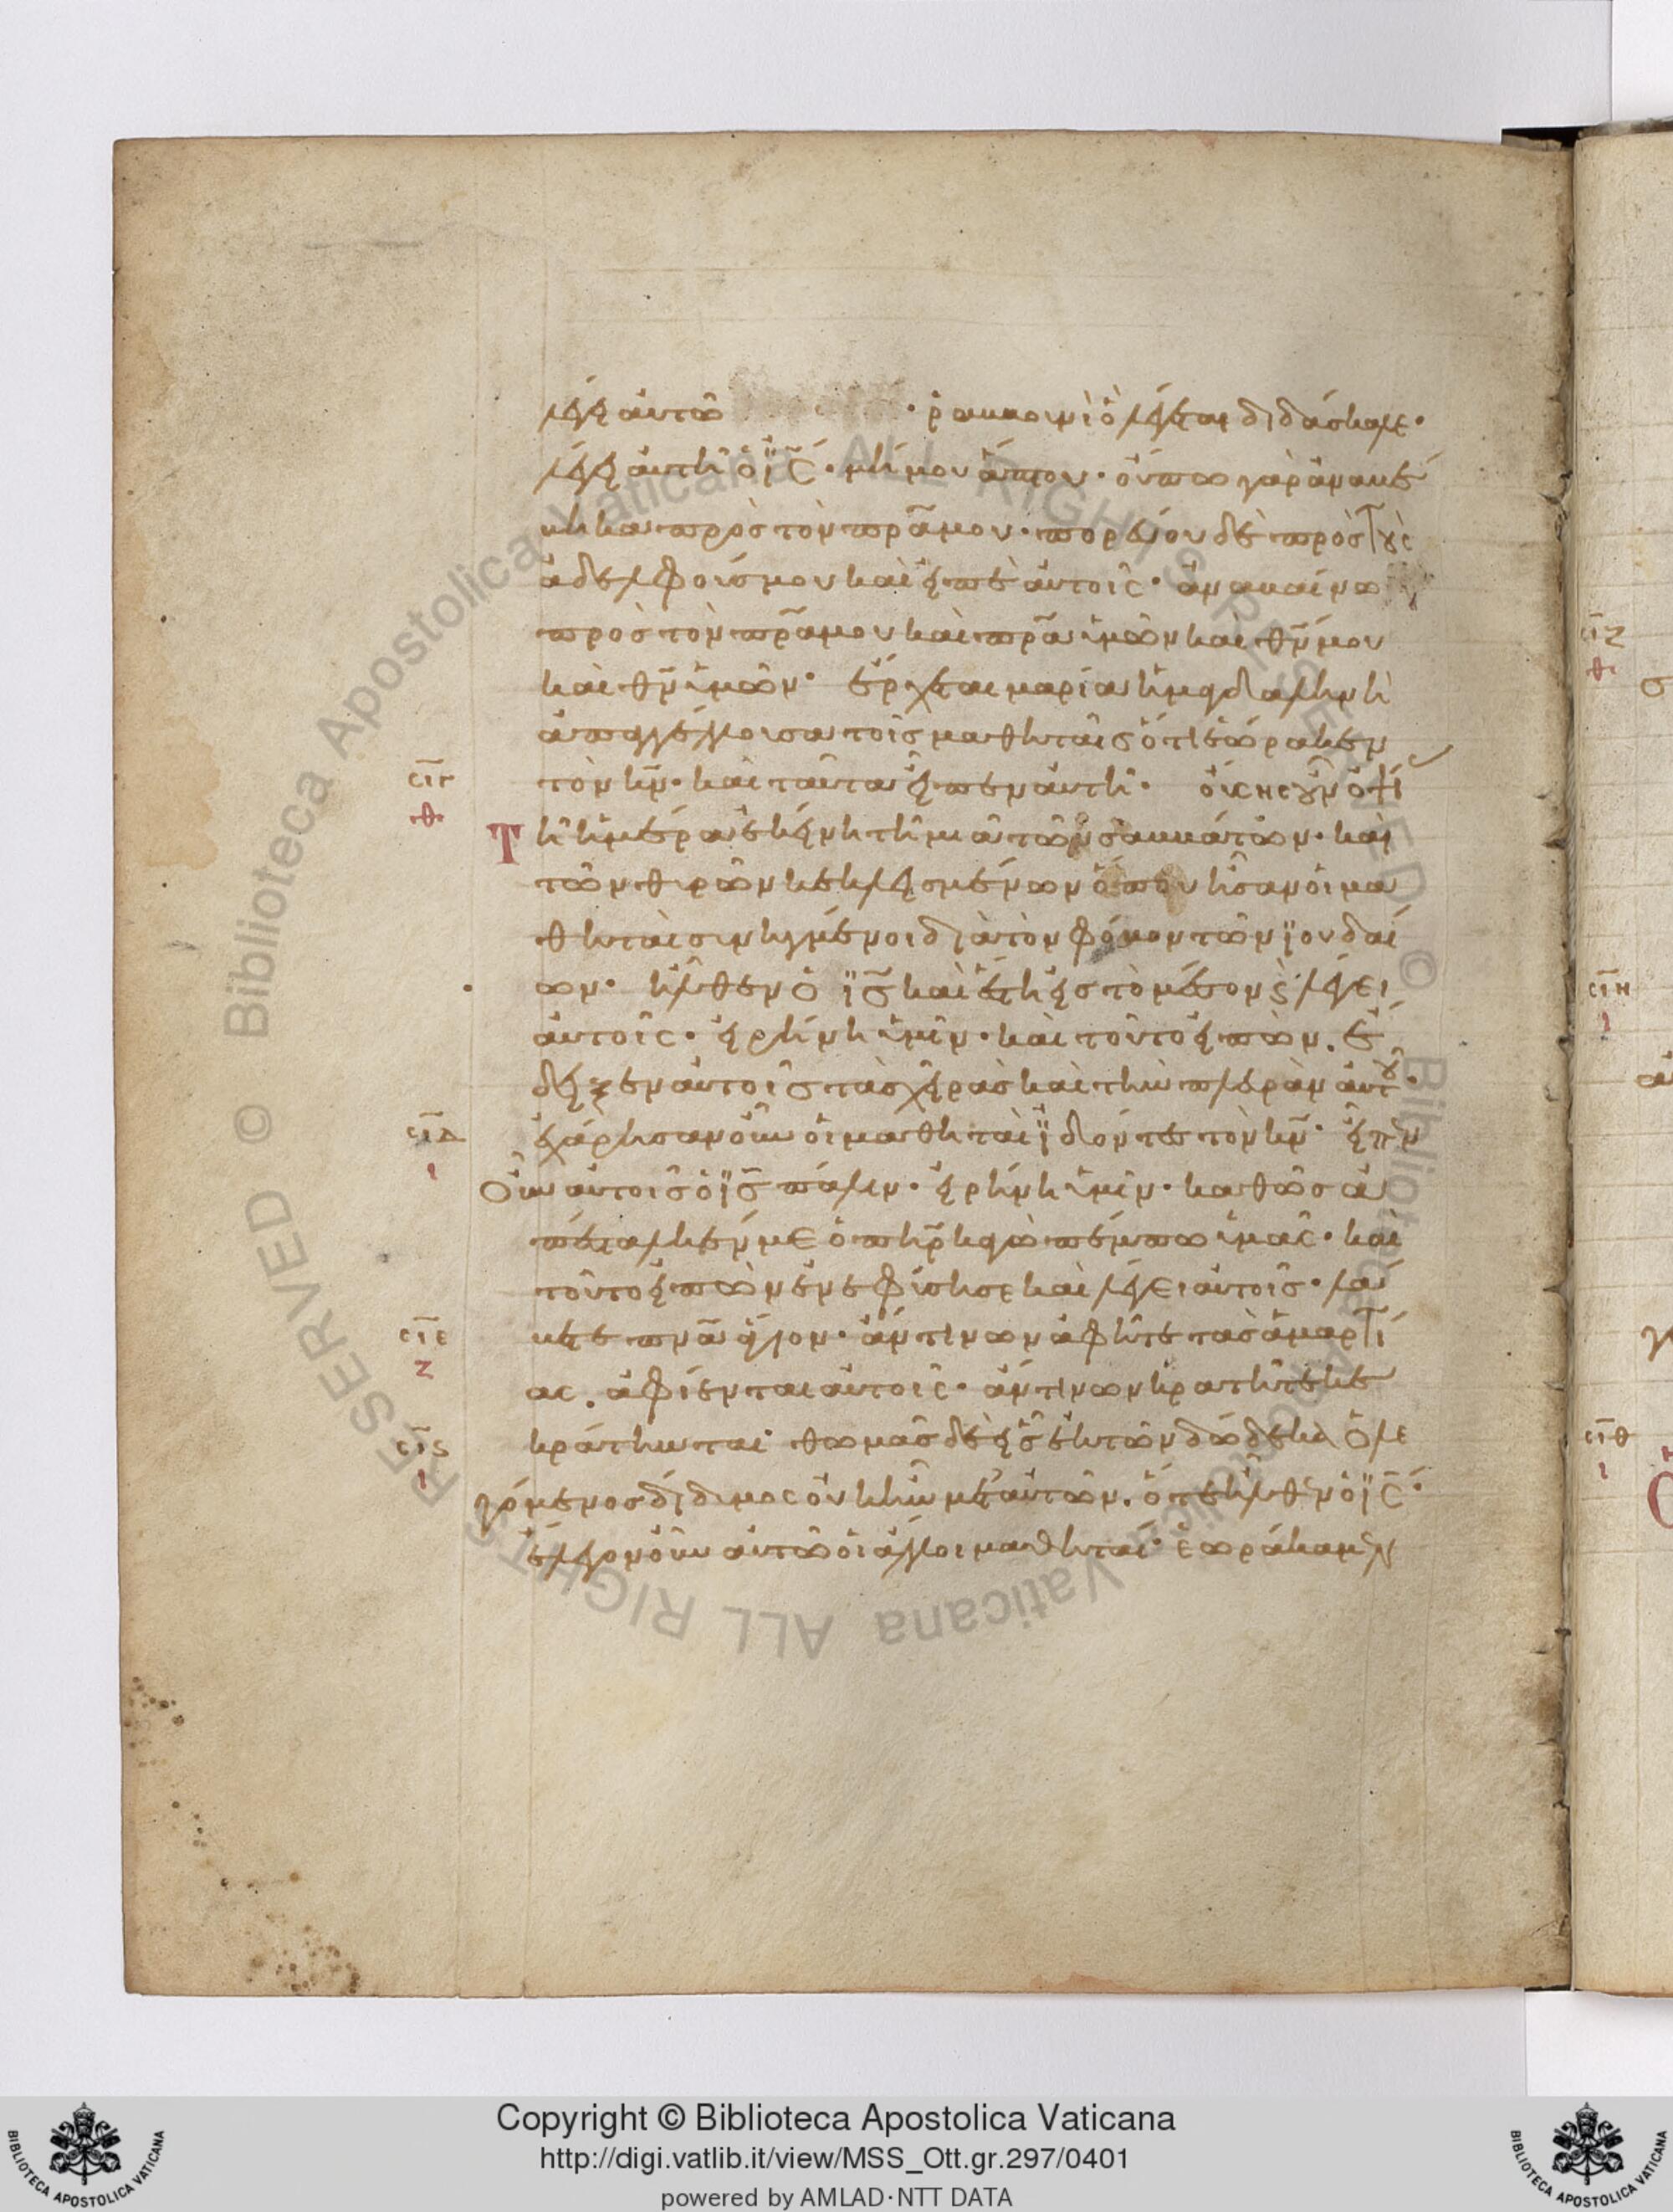 λέγει αὐτῶ · ῥαββουνὶ ὃ λέγεται διδάσκαλε·
λέγει αὐτῆ ὁ ϊς̅· μή μου ἅπτου· οὔπω γὰρ ἀναβέ
βηκα πρὸς τὸν πρ̅α μου· πορεύου δὲ πρὸς τοὺς
ἀδελφούς μου καὶ εἰπὲ αὐτοῖς· ἀναβαίνω
πρὸς τὸν πρ̅α μου καὶ πρ̅α ὑμῶν καὶ θν̅ μου
καὶ θν̅ ὑμῶν· ἔρχεται μαρία ἡ μαγδαληνὴ
ἀπαγγέλλουσα τοῖς μαθηταῖς ὅτι ἑώρακεν
τὸν κν̅· καὶ ταῦτα εἶπεν αὐτῆ· οὔσης οὖν ὀψί
σιγ
θ
Τῆ ἡμέρα ἐκείνη τῆ μιᾶ τῶν σαββάτων· καὶ
τῶν θυρῶν κεκλεισμένων ὅπου ἦσαν οἱ μα
θηταὶ συνηγμένοι διὰ τὸν φόβον τῶν ϊουδαί
ων· ἦλθεν ὁ ϊς̅ καὶ ἔστη εἰς τὸ μέσον κ λέγει
αὐτοῖς· εἰρήνη ὑμῖν· καὶ τοῦτο εἰπὼν. ἔ
δειξεν αὐτοῖς τὰς χεῖρας καὶ τὴν πλευρὰν αὐτοῦ·
σιδ
ι
ἐχάρησαν οὖν οἱ μαθηταὶ ϊδόντες τὸν κν̅· εἶπεν
Οὖν αὐτοῖς ὁ ϊς̅ πάλιν· εἰρήνη ὑμῖν· καθὼς ἀ
πέσταλκέν με ὁ πη̅ρ κἀγὼ πέμπω ὑμᾶς· καὶ
τοῦτο εἰπὼν ἐνεφύσησε καὶ λέγει αὐτοῖς· λά
σιε
ζ
βετε πν̅α ἅγιον· ἄν τινων ἀφῆτε τὰς ἁμαρτί
ας. ἀφίενται αὐτοῖς· ἄν τινων κρατῆτε κε
σις
ι
κράτηνται· θωμᾶς δὲ εἷς ἐκ τῶν δώδεκα ὁ λε
γόμενος δίδυμος οὐκ ἦν μετ' αὐτῶν. ὅτε ἦλθεν ὁ ϊς̅·
ἔλεγον οὖν αὐτῶ οἱ ἄλλοι μαθηταί· ἑωράκαμεν
σιζ
θ
σιη
ι
σιθ
ι
Copyright © Biblioteca Apostolica Vaticana
http://digi.vatlib.it/view/MSS_Ott.gr.297/0401
powered by AMLAD·NTT DATA
BIBLIOTECA APOSTOLICA VATICANA
BIBLIOTECA APOSTOLICA VATICANA
Biblioteca Apostolica Vaticana ALL RIGHTS RESERVED ©
Biblioteca Apostolica Vaticana ALL RIGHTS RESERVED ©